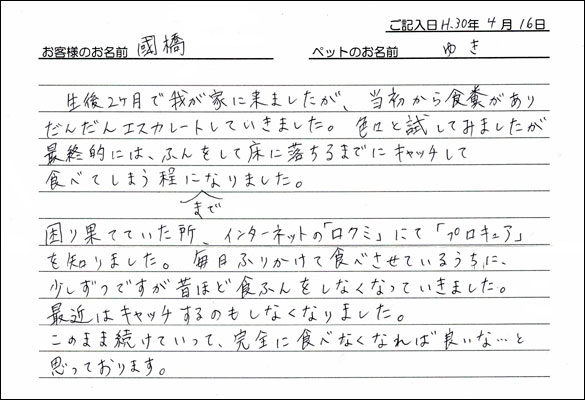 ご記入日H.30年 4 月 16日
お客様のお名前 國橋 ペットのお名前 ゆき
生後2ヶ月で我が家に来ましたが、当初から食糞があり
だんだんエスカレートしていきました。色々と試してみましたが
最終的には、ふんをして床に落ちるまでにキャッチして
食べてしまう程になりました。
まで
困り果てていた所、インターネットの「口クミ」にて「プロキュア」
を知りました。毎日ふりかけて食べさせているうちに、
少しずつですが昔ほど食ふんをしなくなっていきました。
最近はキャッチするのもしなくなりました。
このまま続けていって、完全に食べなくなれば良いな…と
思っております。